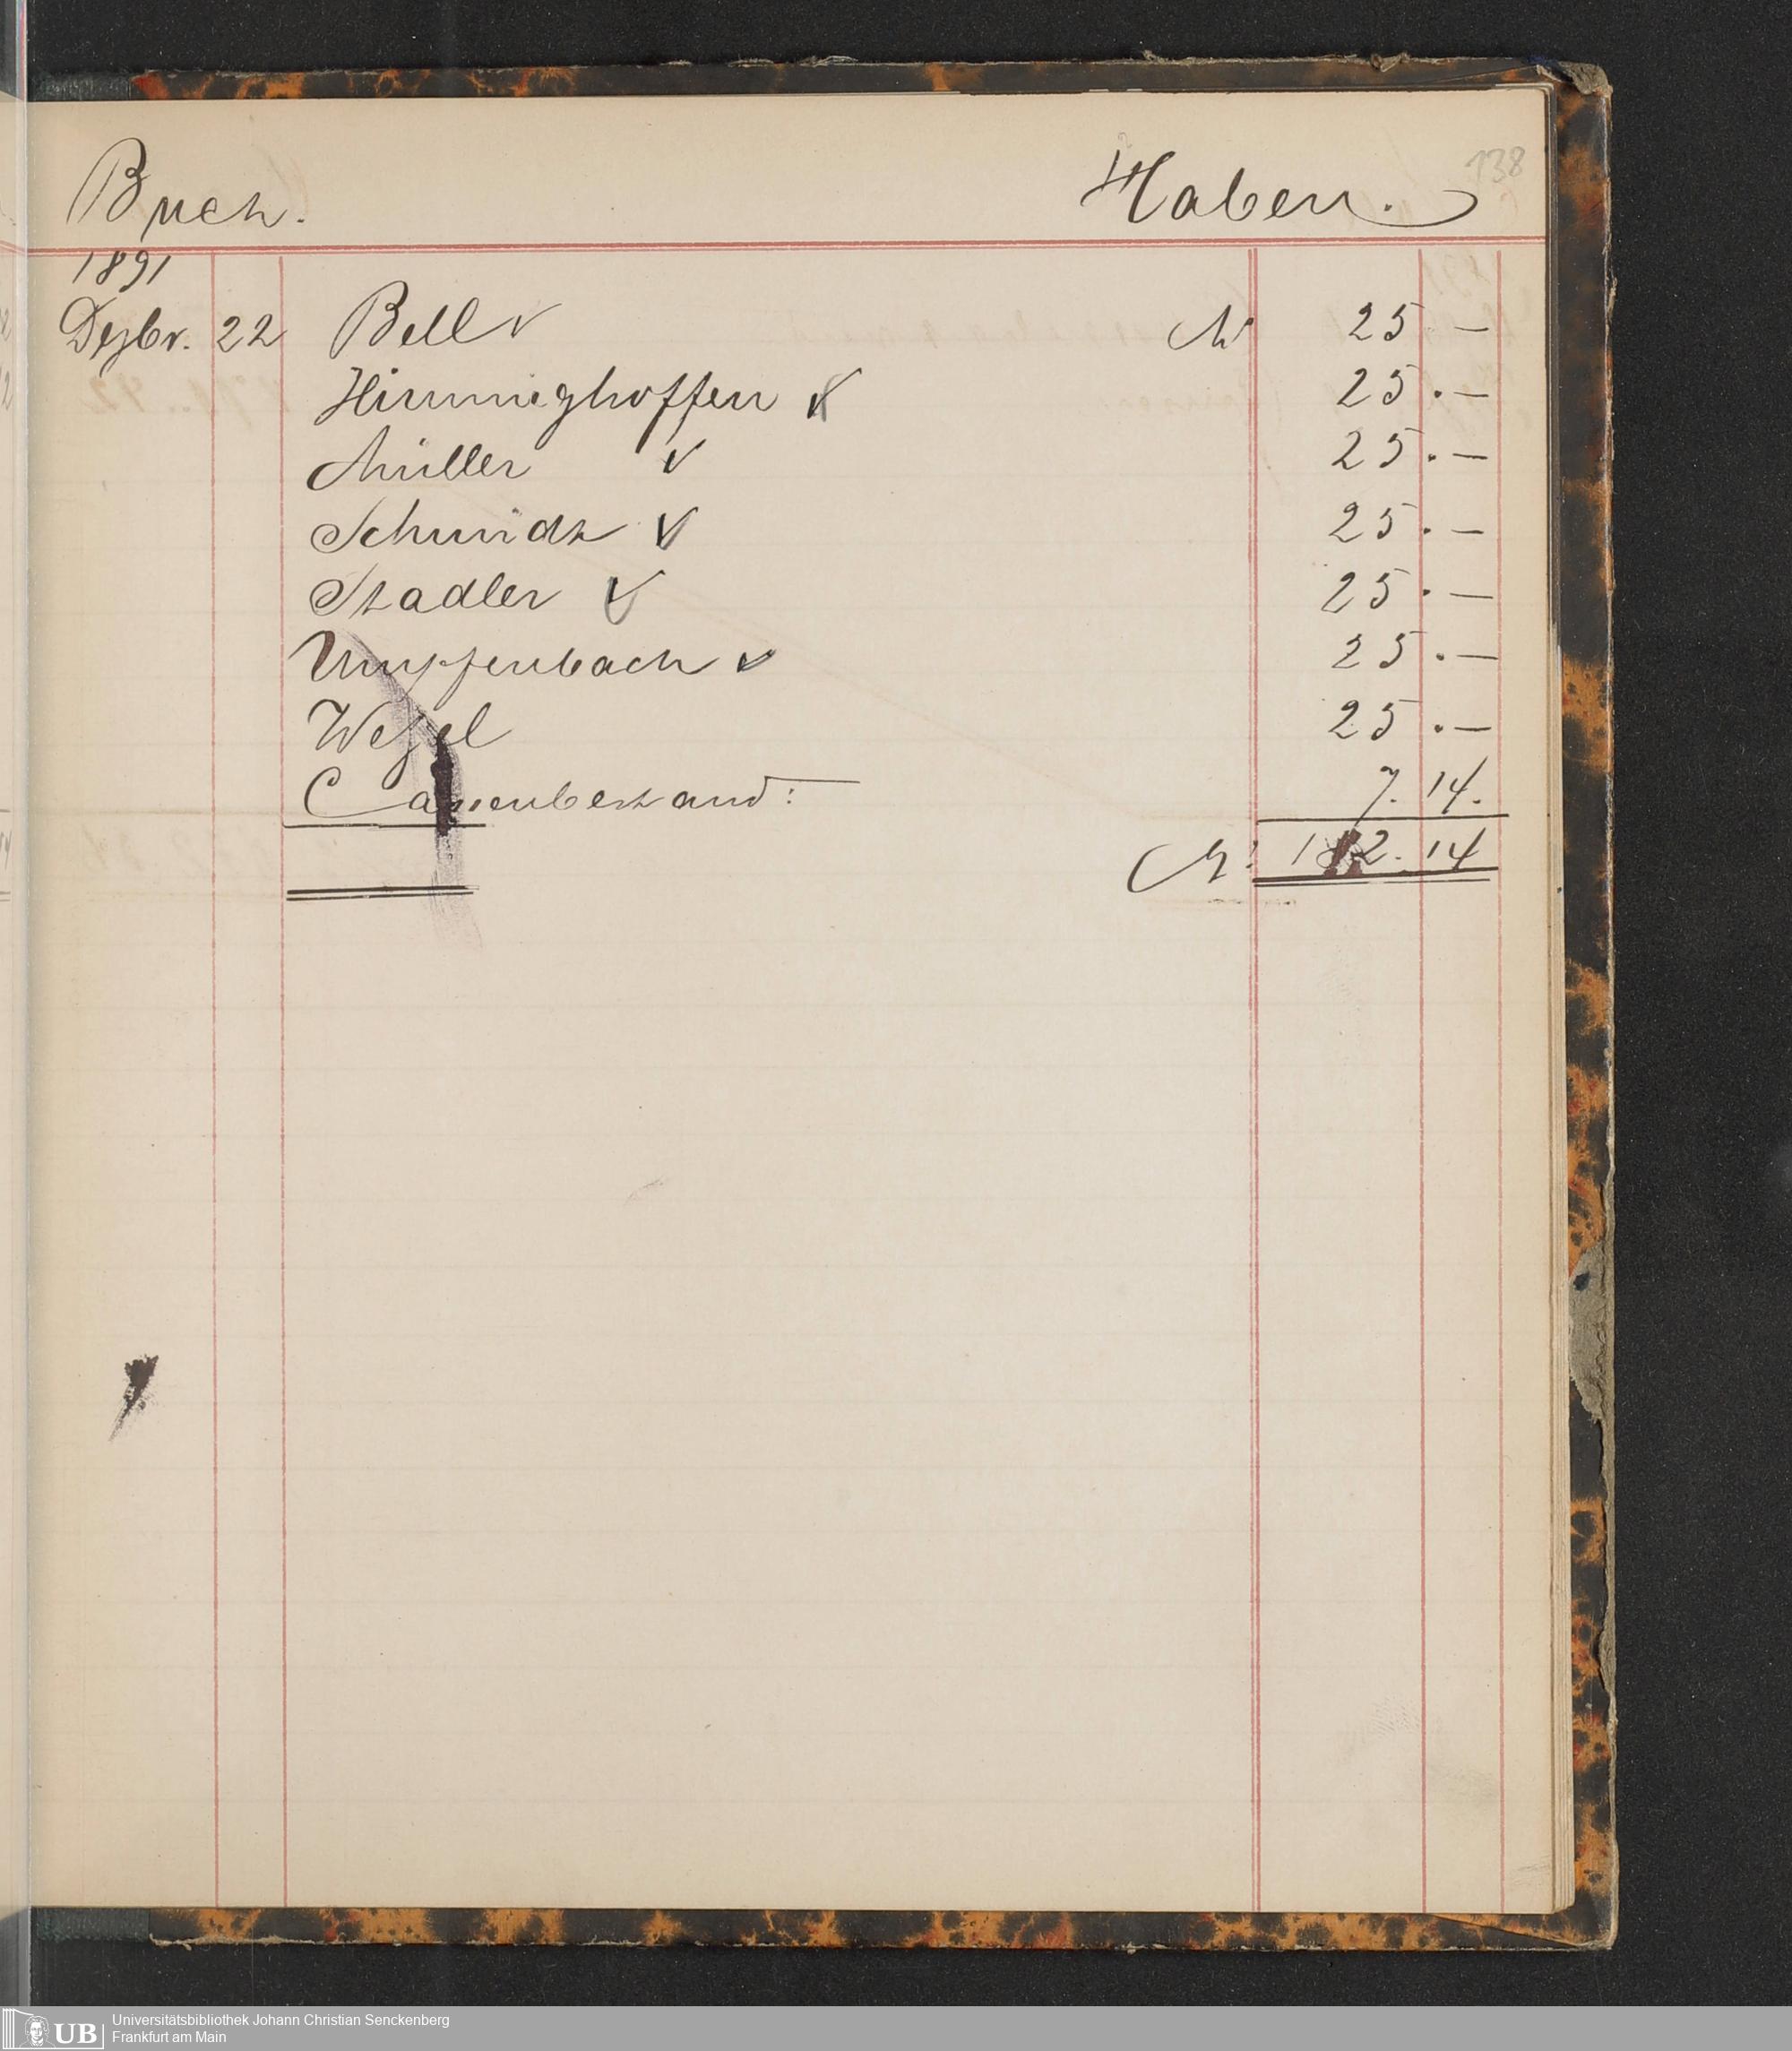 138
Buch. Haben.
1891
Dezbr. 22 Bell ✓ M 25 . —
Himminghoffen ✓ 25 . —
Müller ✓ 25 . —
Schmidt ✓ 25 . —
Stadler ✓ 25 . —
Umpfenbach ✓ 25 . —
Wezel 25 . —
Cassenbestand : 7. 14.
M. 182. 14
UB
Universitätsbibliothek Johann Christian Senckenberg
Frankfurt am Main